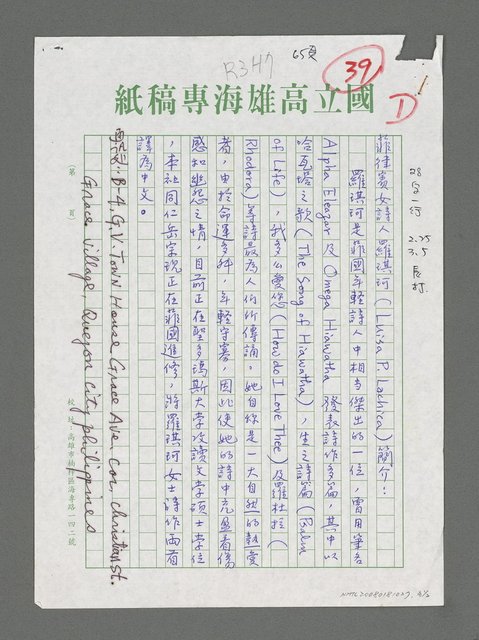 R347
65頁
39
D
國立高雄海專稿紙
28
2.75
3.5
長打
菲律賓女詩人羅琪珂（Luisa P. Lachica）簡介：
羅琪珂是菲國年輕詩人中相當傑出的一位，曾用筆名
Alpha Eleazar 及 Omega Hiawatha 發表詩作多篇，其中以
哈瓦塔之歌（The Song of Hiawatha），生之詩篇（Psalm
of Life），我多么愛您（How do I Love Thee）及羅杜拉（
Rhodora）等詩最為人們所傳誦。她自你是一大自然的熱愛
者，由於命運多舛，年輕守寡，因此使她的詩中充盈着傷
感和幽怨之情，目前正在聖多瑪斯大學攻讀文學碩士學位
，本社同仁岳宗現正在菲國進修，將羅琪珂女士詩作兩首
譯為中文。
B-4. G.V. Town House Grace Ave. Cor. christian st.
Grace village, Quezon city, philippines
第　頁
校址：高雄市楠梓區海專路一四二號
NMTL20080181027 4/5